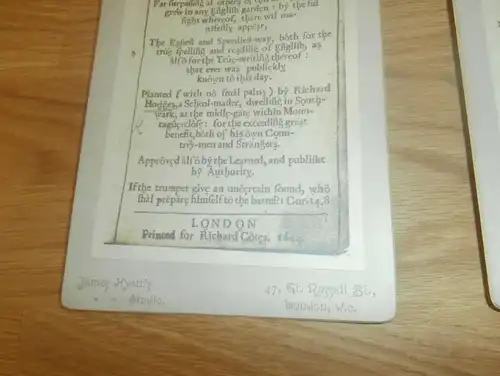 Far surpassing al others of this
grow in any English garden: by the ful
sight whereof, there wil ma-
nifestly appear,
The Easiest and Speediest-way, both for the
true spelling and reading of English, as
also for the True-writing thereof:
that ever was publickly
known to this day.
Planted (with no smal pains) by Richard
Hodges, a School-master, dwelling in South-
wark, at the midle-gate within Moun-
tague-close: for the exceeding great
benefit, both of his own Coun-
trey-men and Strangers.
Approved also by the Learned, and publisht
by Authority.
If the trumpet give an uncertain sound, who
shal prepare himself to the battel? 1 Cor. 14, 8
LONDON
Printed for Richard Cotes. 1644
James Hyatt's
Studio.
47, Gt. Russell St.,
London, W.C.